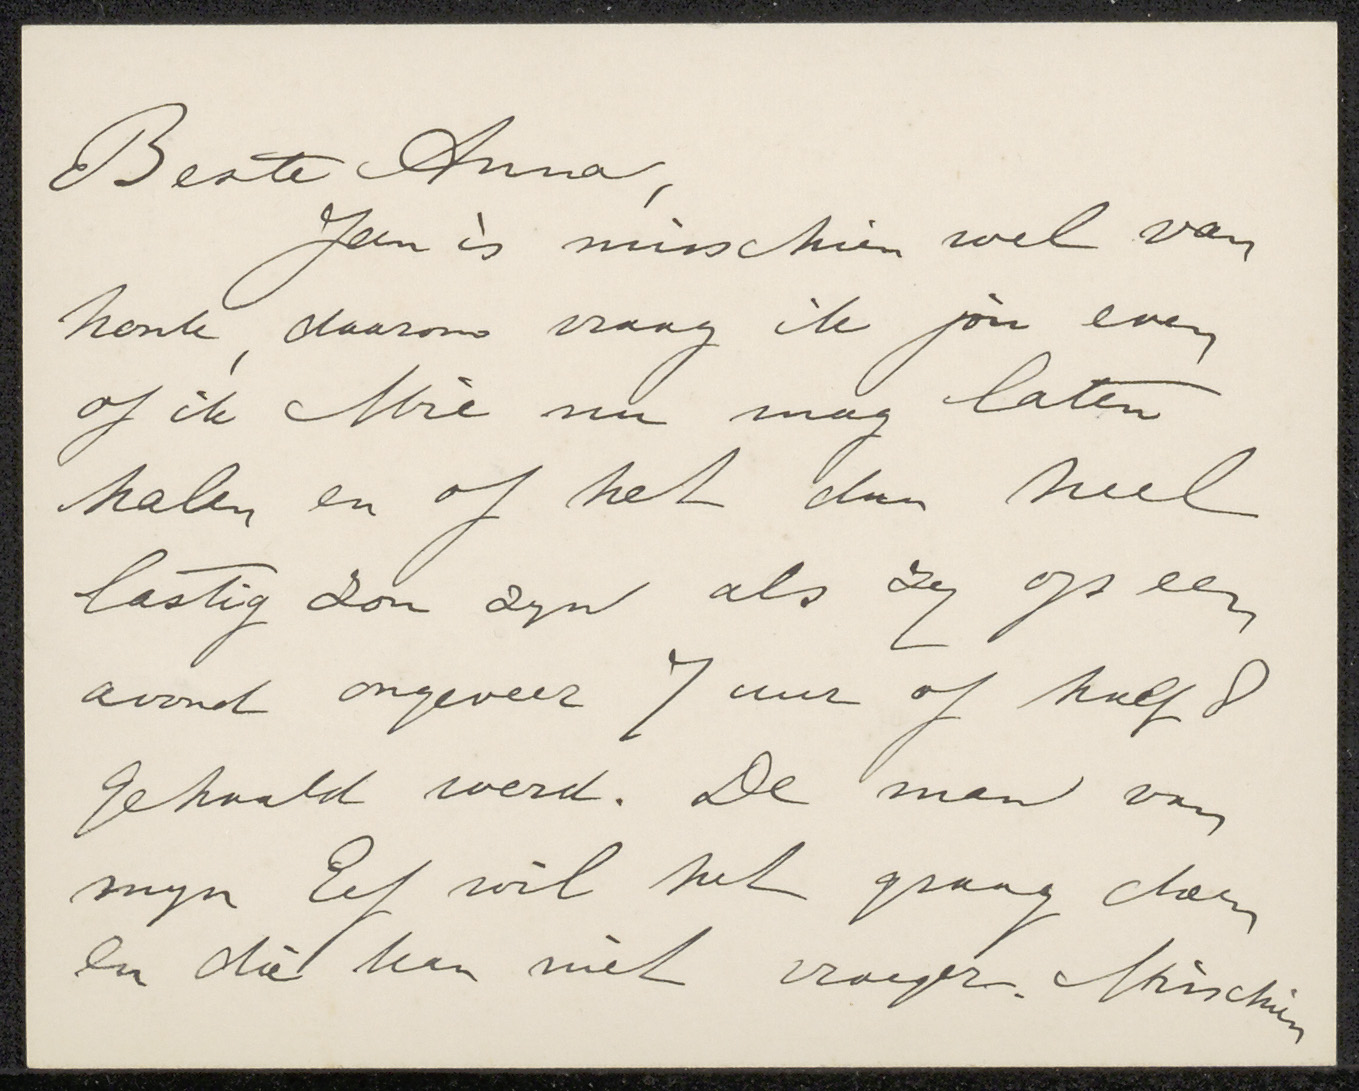 Beste Anna,
Jan is misschien wel van
honk, daarom vraag ik jou even
of ik Mie nu mag laten
halen en of het dan heel
lastig zou zyn als zy op een
avond ongeveer 7 uur of half 8
gehaald werd. De man van
myn Eef wil het graag doen
en die kan niet vroeger. Misschien